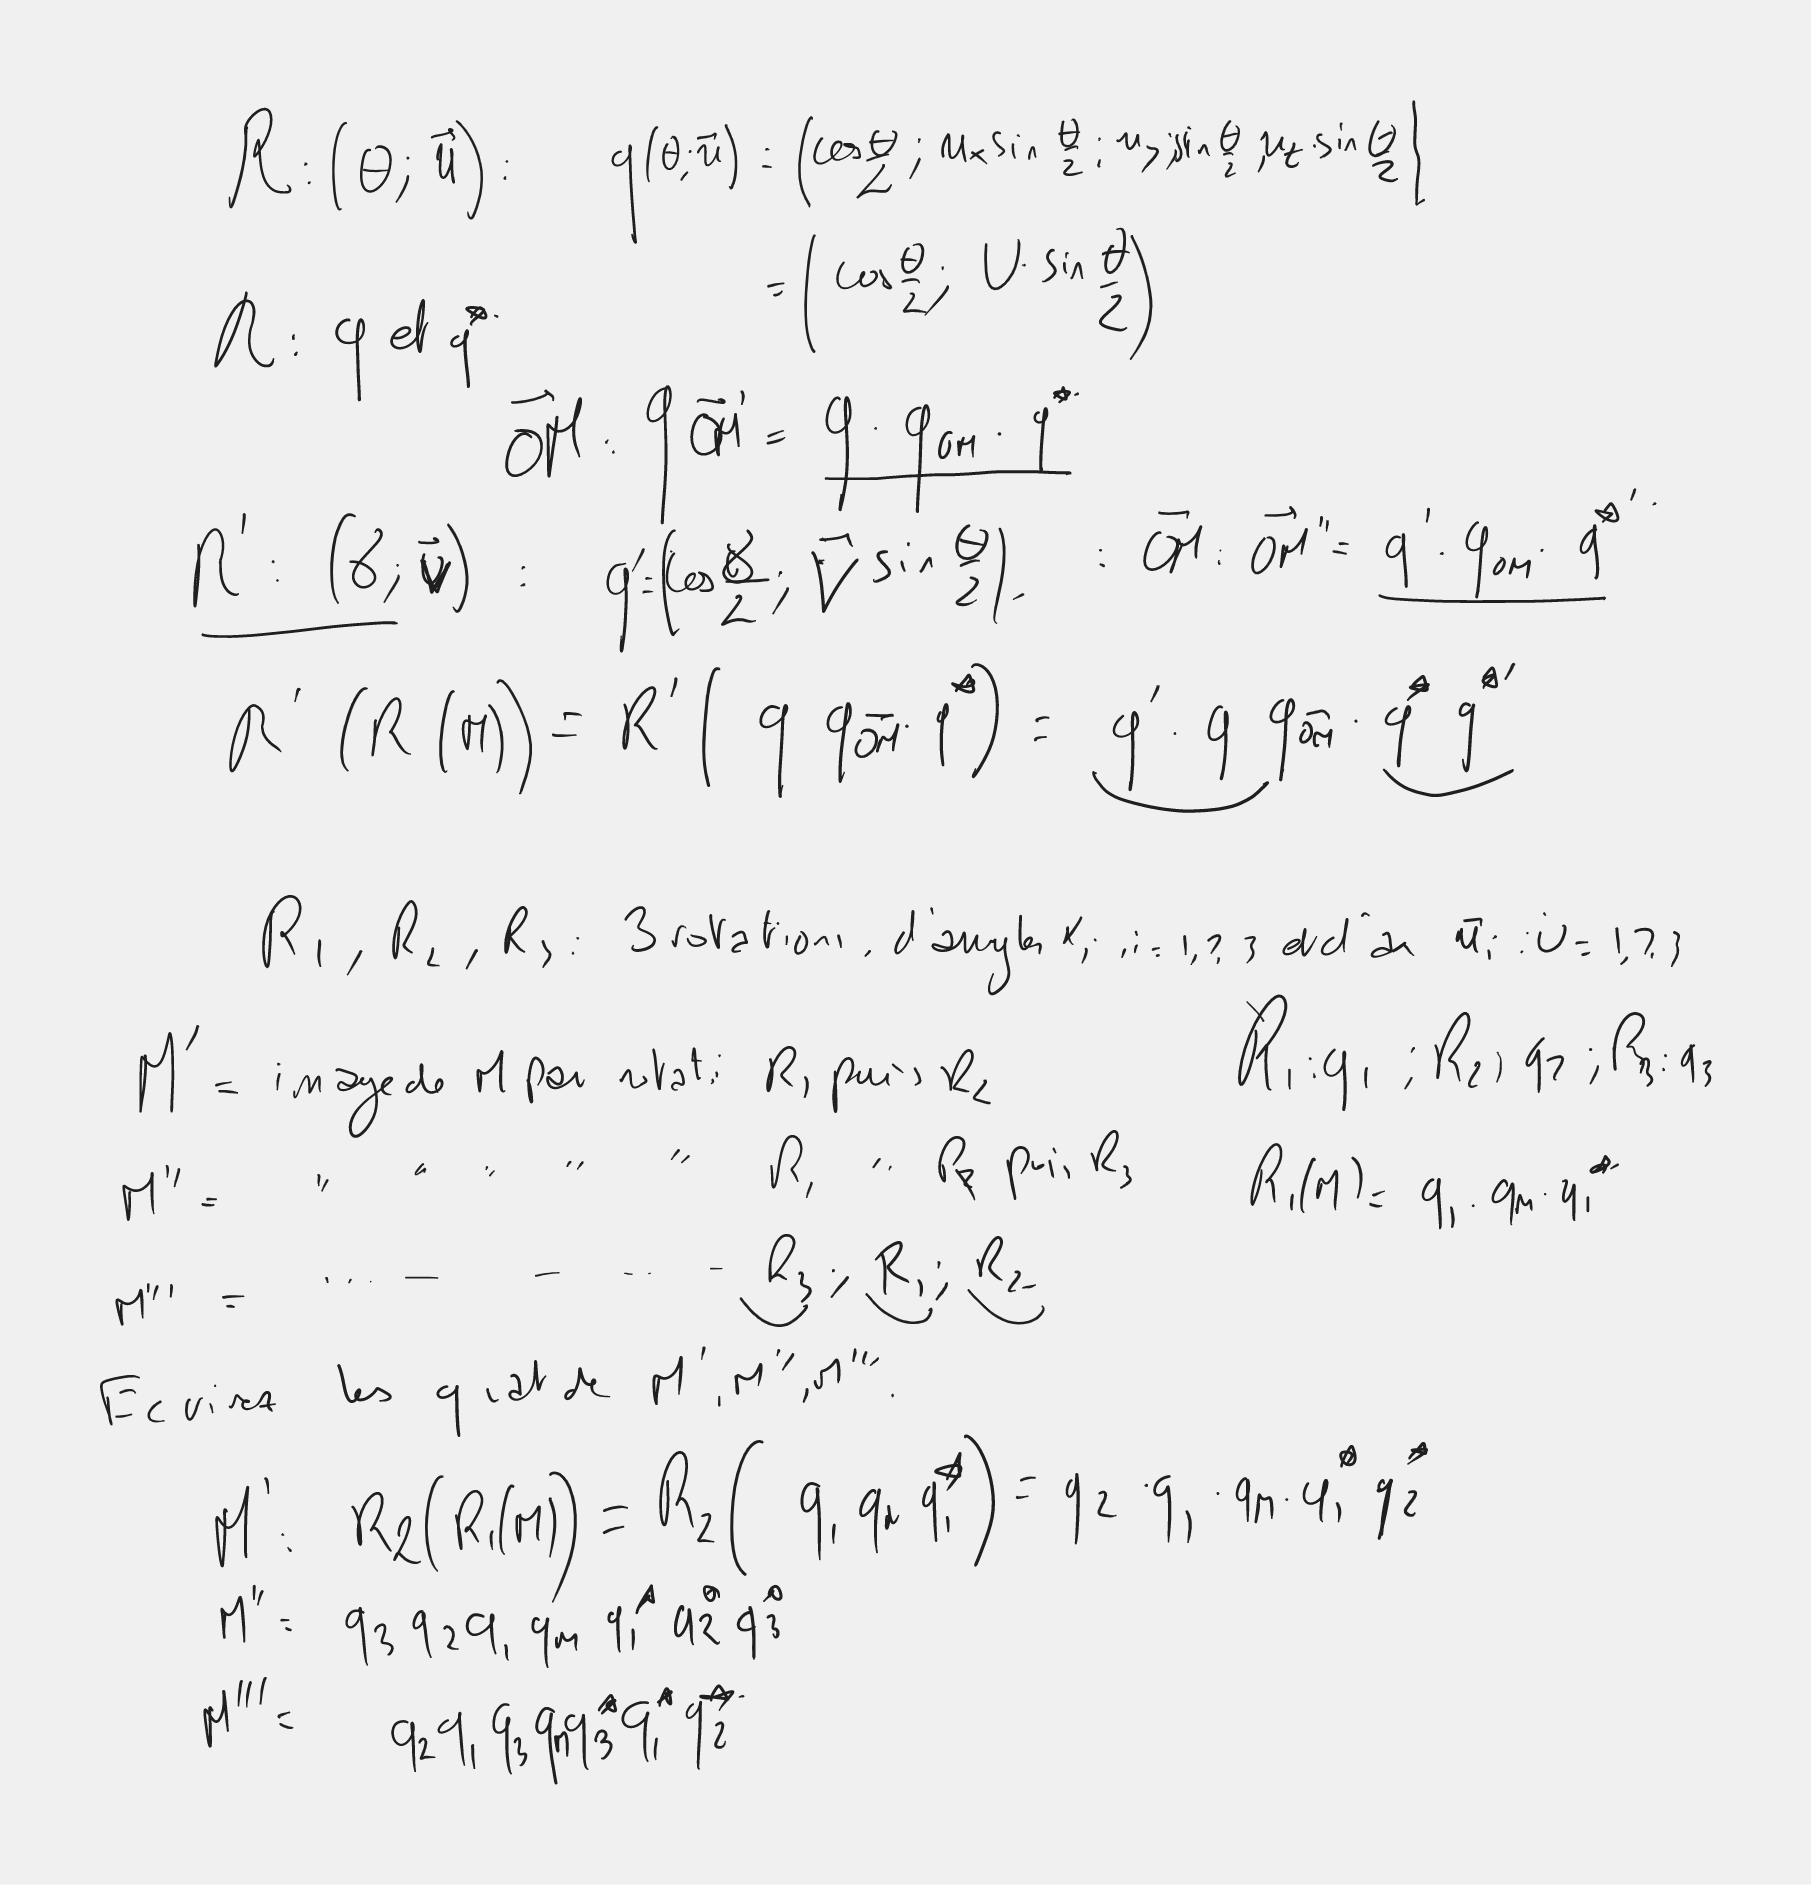 R : (θ; u⃗) : q(θ; u⃗) = (cos θ/2 ; ux sin θ/2 ; uy sin θ/2 ; uz sin θ/2)
= (cos θ/2 ; U · sin θ/2)
R : q et q*
OM⃗ : q OM⃗' = q · qOM · q*
R' : (γ; v⃗) : q' = (cos γ/2 ; V⃗ sin θ/2). : OM⃗ : OM⃗'' = q' · qOM · q*'
R' (R (M)) = R' (q qOM⃗ · q*) = q' · q qOM⃗ · q* q*'
R1, R2, R3 : 3 rotations, d'angles αi, i = 1, 2, 3 et d' u⃗i : i = 1, 2, 3
M' = image de M par rotat: R1 puis R2
R1 : q1 ; R2 : q2 ; R3 : q3
M'' = " " " " " R1 " R2 puis R3
R1(M) = q1 · qM · q1*
M''' = ... — – -- - R3 ; R1 ; R2
Ecrivez les quat de M', M'', M'''.
M' : R2(R1(M)) = R2(q1 qM q1*) = q2 · q1 · qM · q1* q2*
M'' = q3 q2 q1 qM q1* q2* q3*
M''' = q2 q1 q3 qM q3* q1* q2*